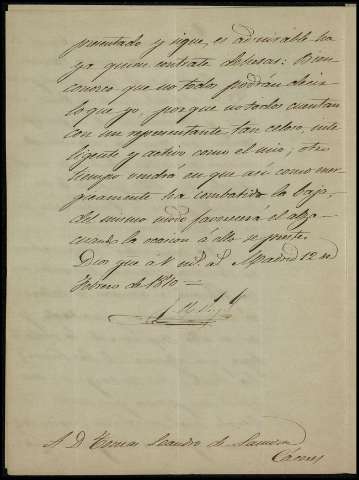 presentado y sigue, es admirable ha
ya quien contrate dehesas: Bien
conozco que no todos podrán decir
lo que yo, por que no todos cuentan
con un representante tan celoso, inte
ligente y activo como el mio; otro
tiempo vendrá en que así como
ha combatido la baja,
del mismo modo favorecerá el alza
cuando la nacion á ello se preste.
Dios que á V. ms. as. Madrid 12 de
Febrero de 1870=
S. D. Tomas Leandro de
Cáceres